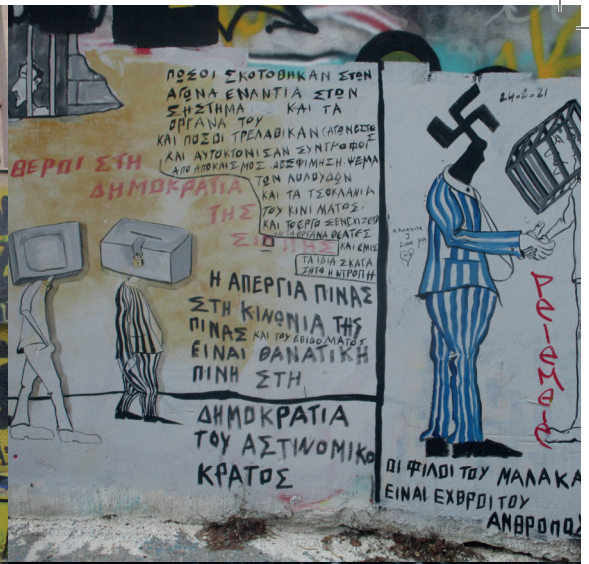 ΠΟΣΟΙ ΣΚΟΤΟΘΗΚΑΝ ΣΤΟΝ
ΑΓΟΝΑ ΕΝΑΝΤΙΑ ΣΤΟΝ
ΣΗΣΤΗΜΑ ΚΑΙ ΤΑ
ΟΡΓΑΝΑ ΤΟΥ
ΚΑΙ ΠΟΣΟΙ ΤΡΕΛΑΘΙΚΑΝ
ΚΑΙ ΑΥΤΟΚΤΟΝΙΣΑΝ ΣΥΝΤΡΟΦΟΙ
ΑΠΟ ΑΠΟΚΛΙΣΜΟΣ ΔΕΣΦΙΜΗΣΗ ΨΕΜΑ
ΤΩΝ ΛΟΛΟΥΔΩΝ
ΚΑΙ ΤΑ ΤΣΟΚΛΑΝΙΑ
ΤΟΥ ΚΙΝΙ ΜΑΤΟΣ.
ΚΑΙ ΕΜΙΣ
ΤΑ ΙΔΙΑ ΣΚΑΤΑ
ΖΗΤΟ Η ΝΤΡΟΠΗ
ΘΕΡΟΙ ΣΤΗ
ΔΗΜΟΚΡΑΤΙΑ
ΤΗΣ
ΣΙΟΠΗΣ
Η ΑΠΕΡΓΙΑ ΠΙΝΑΣ
ΣΤΗ ΚΙΝΟΝΙΑ ΤΗΣ
ΠΙΝΑΣ ΚΑΙ ΤΟΥ ΕΠΙΔΟΜΑΤΟΣ
ΕΙΝΑΙ ΘΑΝΑΤΙΚΗ
ΠΙΝΗ ΣΤΗ
ΔΗΜΟΚΡΑΤΙΑ
ΤΟΥ ΑΣΤΙΝΟΜΙΚΟ
ΚΡΑΤΟΣ
24-2-21
ΟΙ ΦΙΛΟΙ ΤΟΥ ΜΑΛΑΚΑ
ΕΙΝΑΙ ΕΧΘΡΟΙ ΤΟΥ
ΑΝΘΡΟΠΟΣ